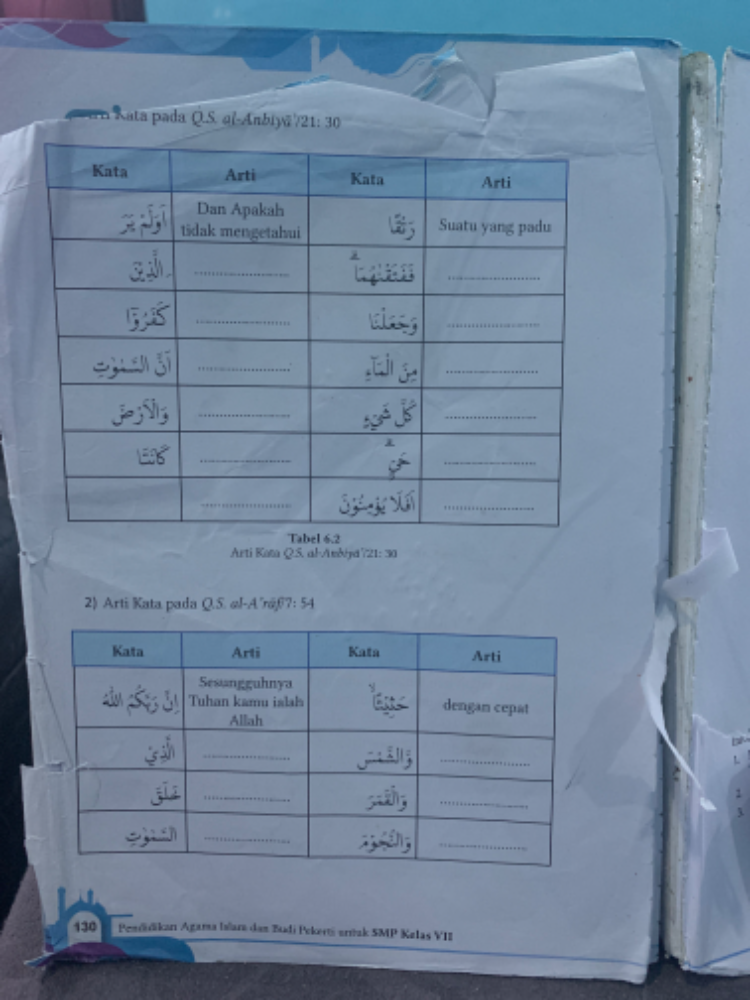 Kata pada Q.S. al-Anbiyā'/21: 30
Kata Arti Kata Arti
اَوَلَمْ يَرَ Dan Apakah tidak mengetahui رَتْقًا Suatu yang padu
الَّذِيْنَ ........................ فَفَتَقْنٰهُمَاۗ ........................
كَفَرُوْٓا ........................ وَجَعَلْنَا ........................
اَنَّ السَّمٰوٰتِ ........................ مِنَ الْمَاۤءِ ........................
وَالْاَرْضَ ........................ كُلَّ شَيْءٍ ........................
كَانَتَا ........................ حَيٍّۗ ........................
........................ اَفَلَا يُؤْمِنُوْنَ ........................
Tabel 6.2
Arti Kata Q.S. al-Anbiyā'/21: 30
2) Arti Kata pada Q.S. al-A'rāf/7: 54
Kata Arti Kata Arti
اِنَّ رَبَّكُمُ اللّٰهُ Sesungguhnya Tuhan kamu ialah Allah حَثِيْثًاۙ dengan cepat
الَّذِيْ ........................ وَّالشَّمْسَ ........................
خَلَقَ ........................ وَالْقَمَرَ ........................
السَّمٰوٰتِ ........................ وَالنُّجُوْمَ ........................
130 Pendidikan Agama Islam dan Budi Pekerti untuk SMP Kelas VII
1.
2
3